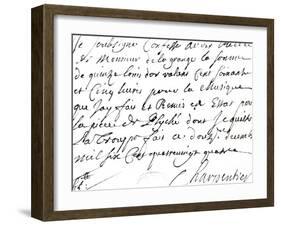 Je soubsigne Confesse avoir Receu
de Monsieur de la grange la somme
de quinze louis dor valant Cent soixante
et Cinq livres pour la Musique
que Jay fait et Remis en Estat pour
la piece de Psyché dont Je quitte
la Troupe fait ce
mil six Cent quatrevingt quatre
Charpentier